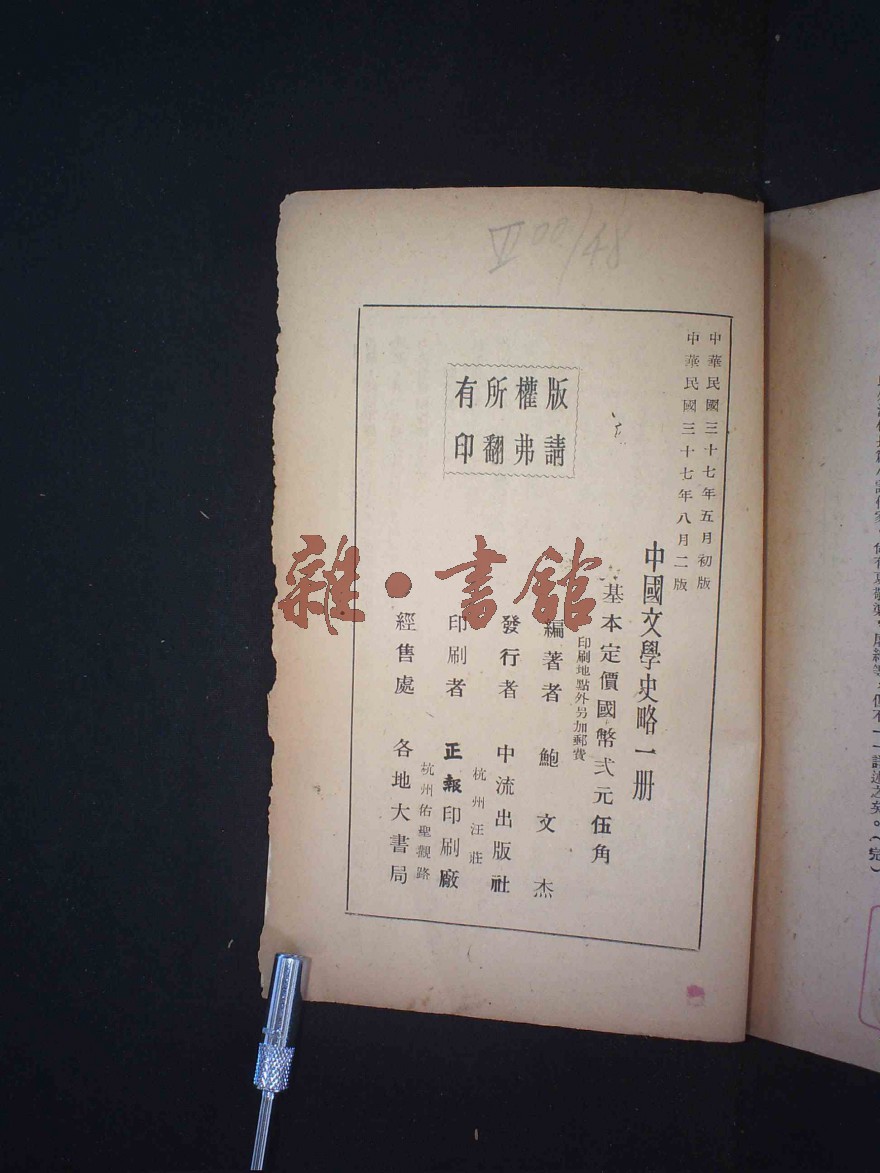 中華民國三十七年五月初版
中華民國三十七年八月二版
中國文學史略一册
基本定價國幣弍元伍角
印刷地點外另加郵費
編著者 鮑文杰
發行者 中流出版社
杭州汪莊
印刷者 正報印刷廠
杭州佑聖觀路
經售處 各地大書局
版權所有
請弗翻印
雜·書館
VI00/48